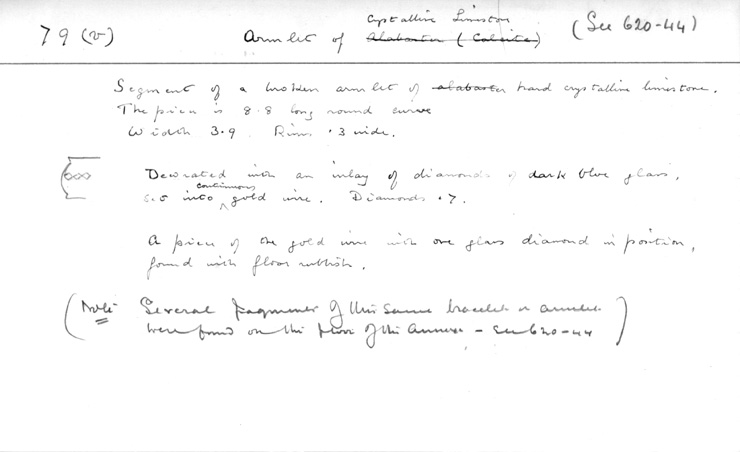 79 (v) Armlet of Alabaster (Calcite) Crystalline Limestone (See 620-44)
Segment of a broken armlet of alabaster hard crystalline limestone.
The piece is 8.8 long round curve
Width 3.9 Rim .3 wide.
Decorated with an inlay of diamonds of dark blue glass,
set into continuous gold wire. Diamonds .7.
A piece of the gold wire with one glass diamond in position,
found with floor rubbish.
(Note Several fragments of this same bracelet or armlet
were found on the floor of the Annexe - See 620-44)